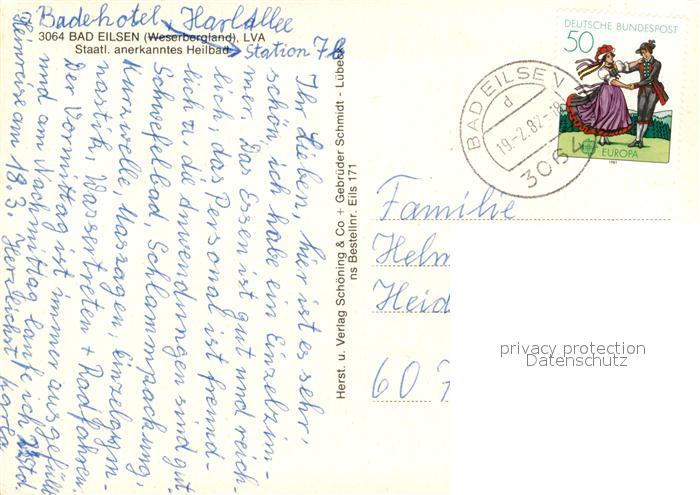 Badehotel Harlallee
3064 BAD EILSEN (Weserbergland), LVA
Staatl. anerkanntes Heilbad
Station 7b
Ihr Lieben, hier ist es sehr
schön, ich habe ein Einzelzim-
mer. Das Essen ist gut und reich-
lich, das Personal ist freund-
lich zu, die Anwendungen sind gut
Schwefelbad, Schlammpackung,
Kurzwelle, Massagen, Einzelgym-
nastik, Wassertreten + Radfahren.
Der Vormittag ist immer ausgefüllt
und am Nachmittag laufe ich
Heimreise am 18.3. Herzlichst
Herst. u. Verlag Schöning & Co + Gebrüder Schmidt - Lübeck
ns Bestellnr. Eils 171
DEUTSCHE BUNDESPOST
50
EUROPA
1981
BAD EILSEN
d
19.-2.82-18
306
Familie
Helm
Heid
60
privacy protection
Datenschutz